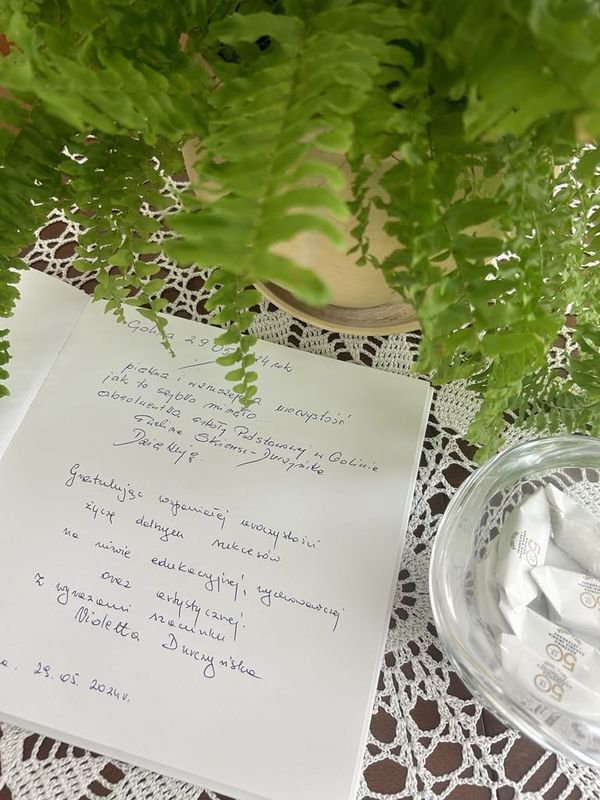 Golina 29.05.2024 rok
piękna i wzruszająca uroczystość
jak to szybko minęło...
absolwentka szkoły Podstawowej w Golinie
Durczyńska
Dziękuję.
Gratulując wspaniałej uroczystości
życzę dalszych sukcesów
na niwie edukacyjnej, wychowawczej
oraz artystycznej.
Z wyrazami szacunku
Violetta Durczyńska
29.05.2024r.
50
50
50